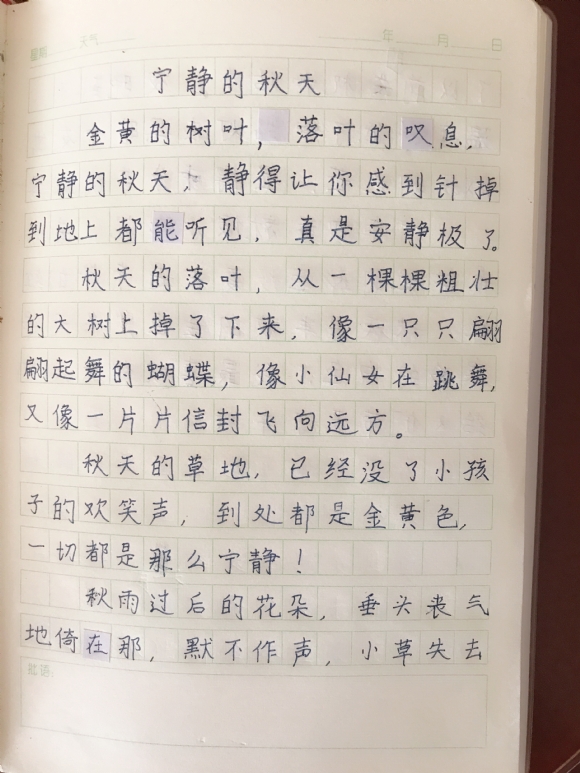 星期 天气 年 月 日
宁静的秋天
金黄的树叶，落叶的叹息，
宁静的秋天，静得让你感到针掉
到地上都能听见，真是安静极了。
秋天的落叶，从一棵棵粗壮
的大树上掉了下来，像一只只翩
翩起舞的蝴蝶，像小仙女在跳舞，
又像一片片信封飞向远方。
秋天的草地，已经没了小孩
子的欢笑声，到处都是金黄色，
一切都是那么宁静！
秋雨过后的花朵，垂头丧气
地倚在那，默不作声，小草失去